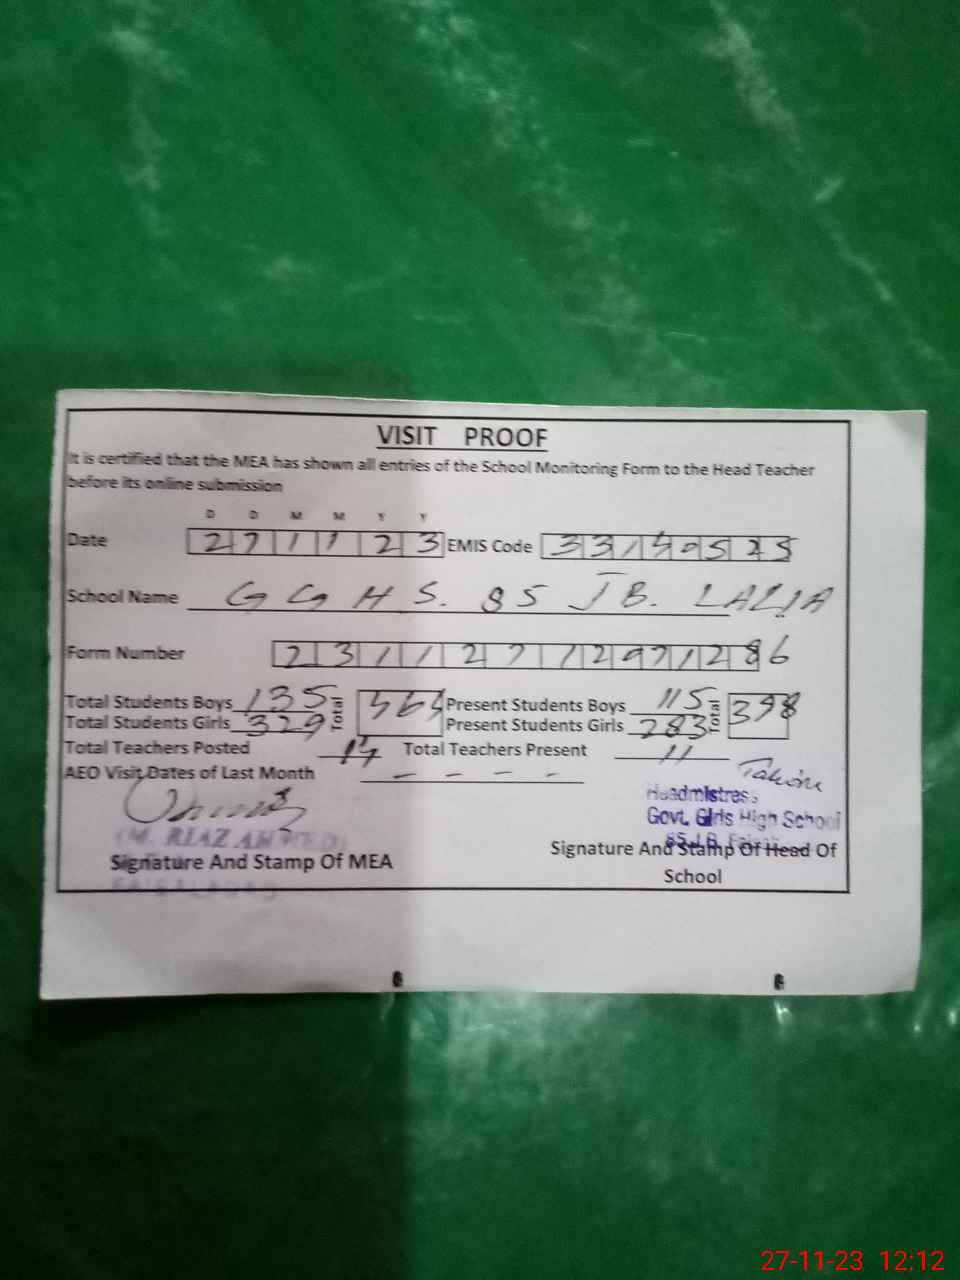 VISIT PROOF
It is certified that the MEA has shown all entries of the School Monitoring Form to the Head Teacher
before its online submission
D D M M Y Y
Date 27 11 23 EMIS Code
School Name GGHS. 85 JB. LALIA
Form Number
Total Students Boys 135 Total 464 Present Students Boys 115 Total 398
Total Students Girls 329 Present Students Girls 283
Total Teachers Posted Total Teachers Present 11
AEO Visit Dates of Last Month - - - -
Headmistress
Govt. Girls High School
(M. RIAZ AHMED) 85 J.B.
Signature And Stamp Of MEA Signature And Stamp Of Head Of
School
FAISALABAD
27-11-23 12:12